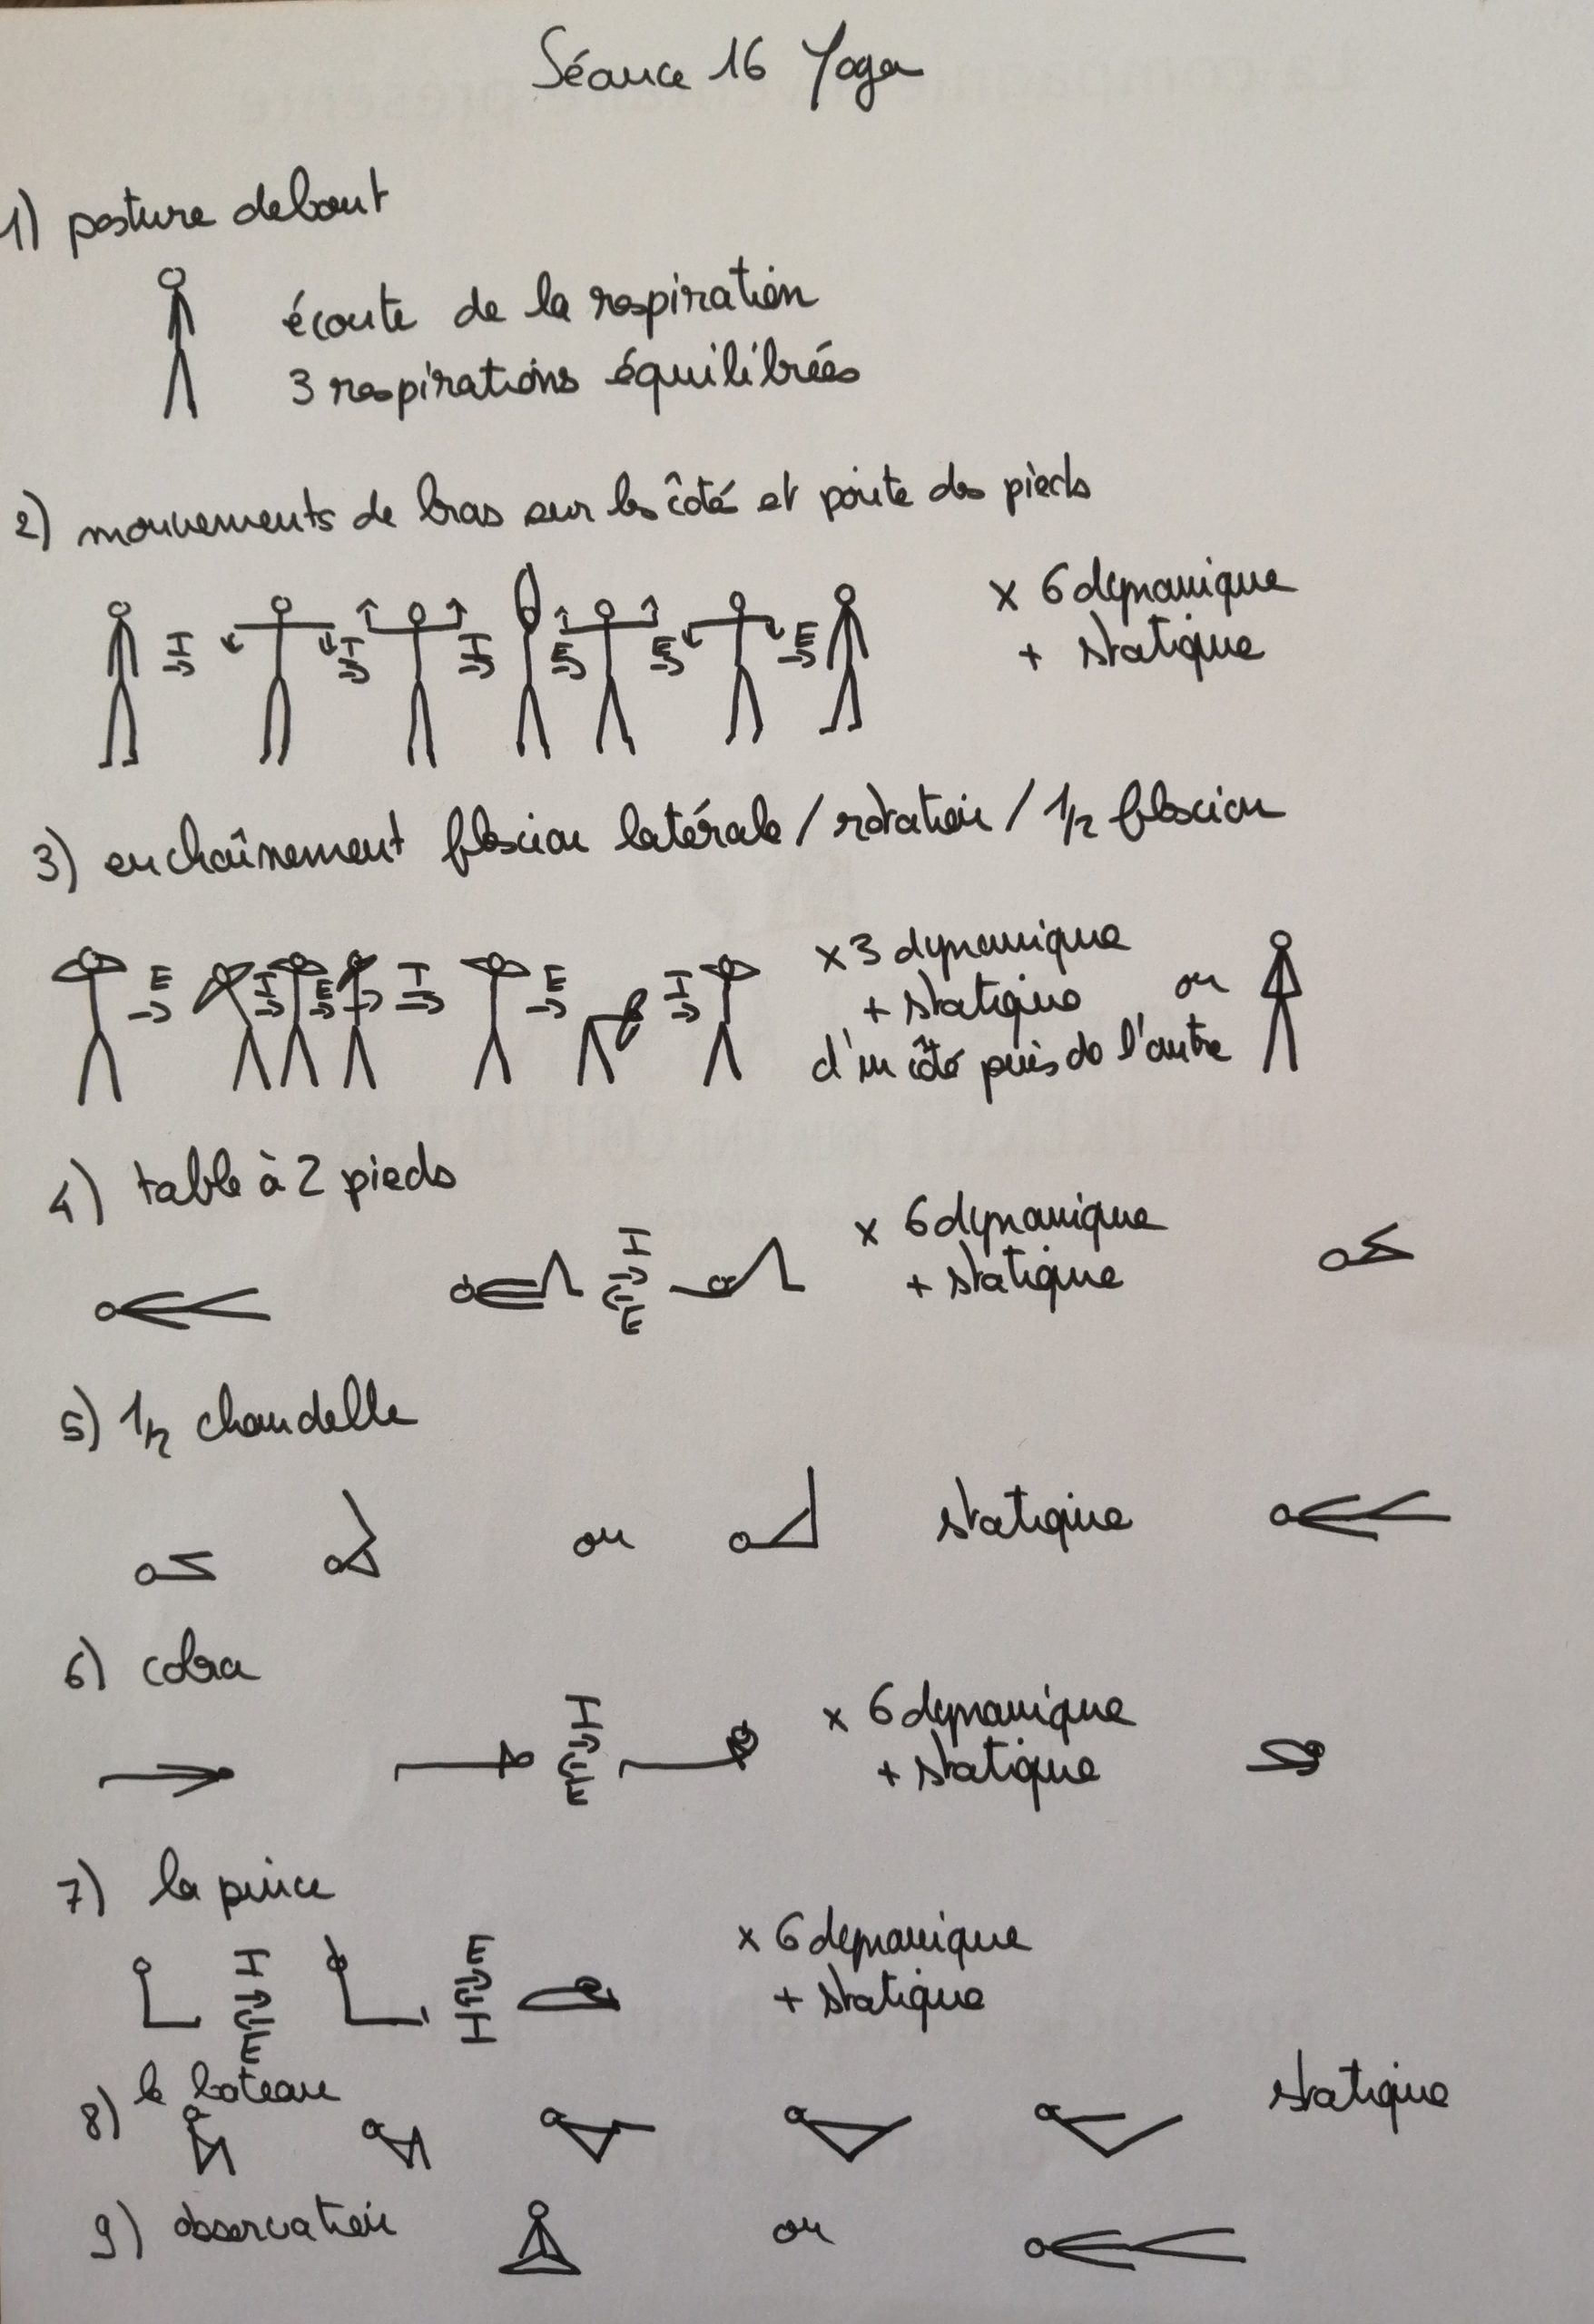 Séance 16 Yoga
1) posture debout
écoute de la respiration
3 respirations équilibrées
2) mouvements de bras sur les côté et pointe des pieds
I I I E E E
x 6 dynamique
+ statique
3) enchaînement flexion latérale / rotation / 1/2 flexion
E I E I E I
x 3 dynamique
+ statique ou
d'un côté puis de l'autre
4) table à 2 pieds
I
E
x 6 dynamique
+ statique
5) 1/2 chandelle
ou statique
6) cobra
I
E
x 6 dynamique
+ statique
7) la pince
I E
E I
x 6 dynamique
+ statique
8) le bateau
statique
9) observation
ou